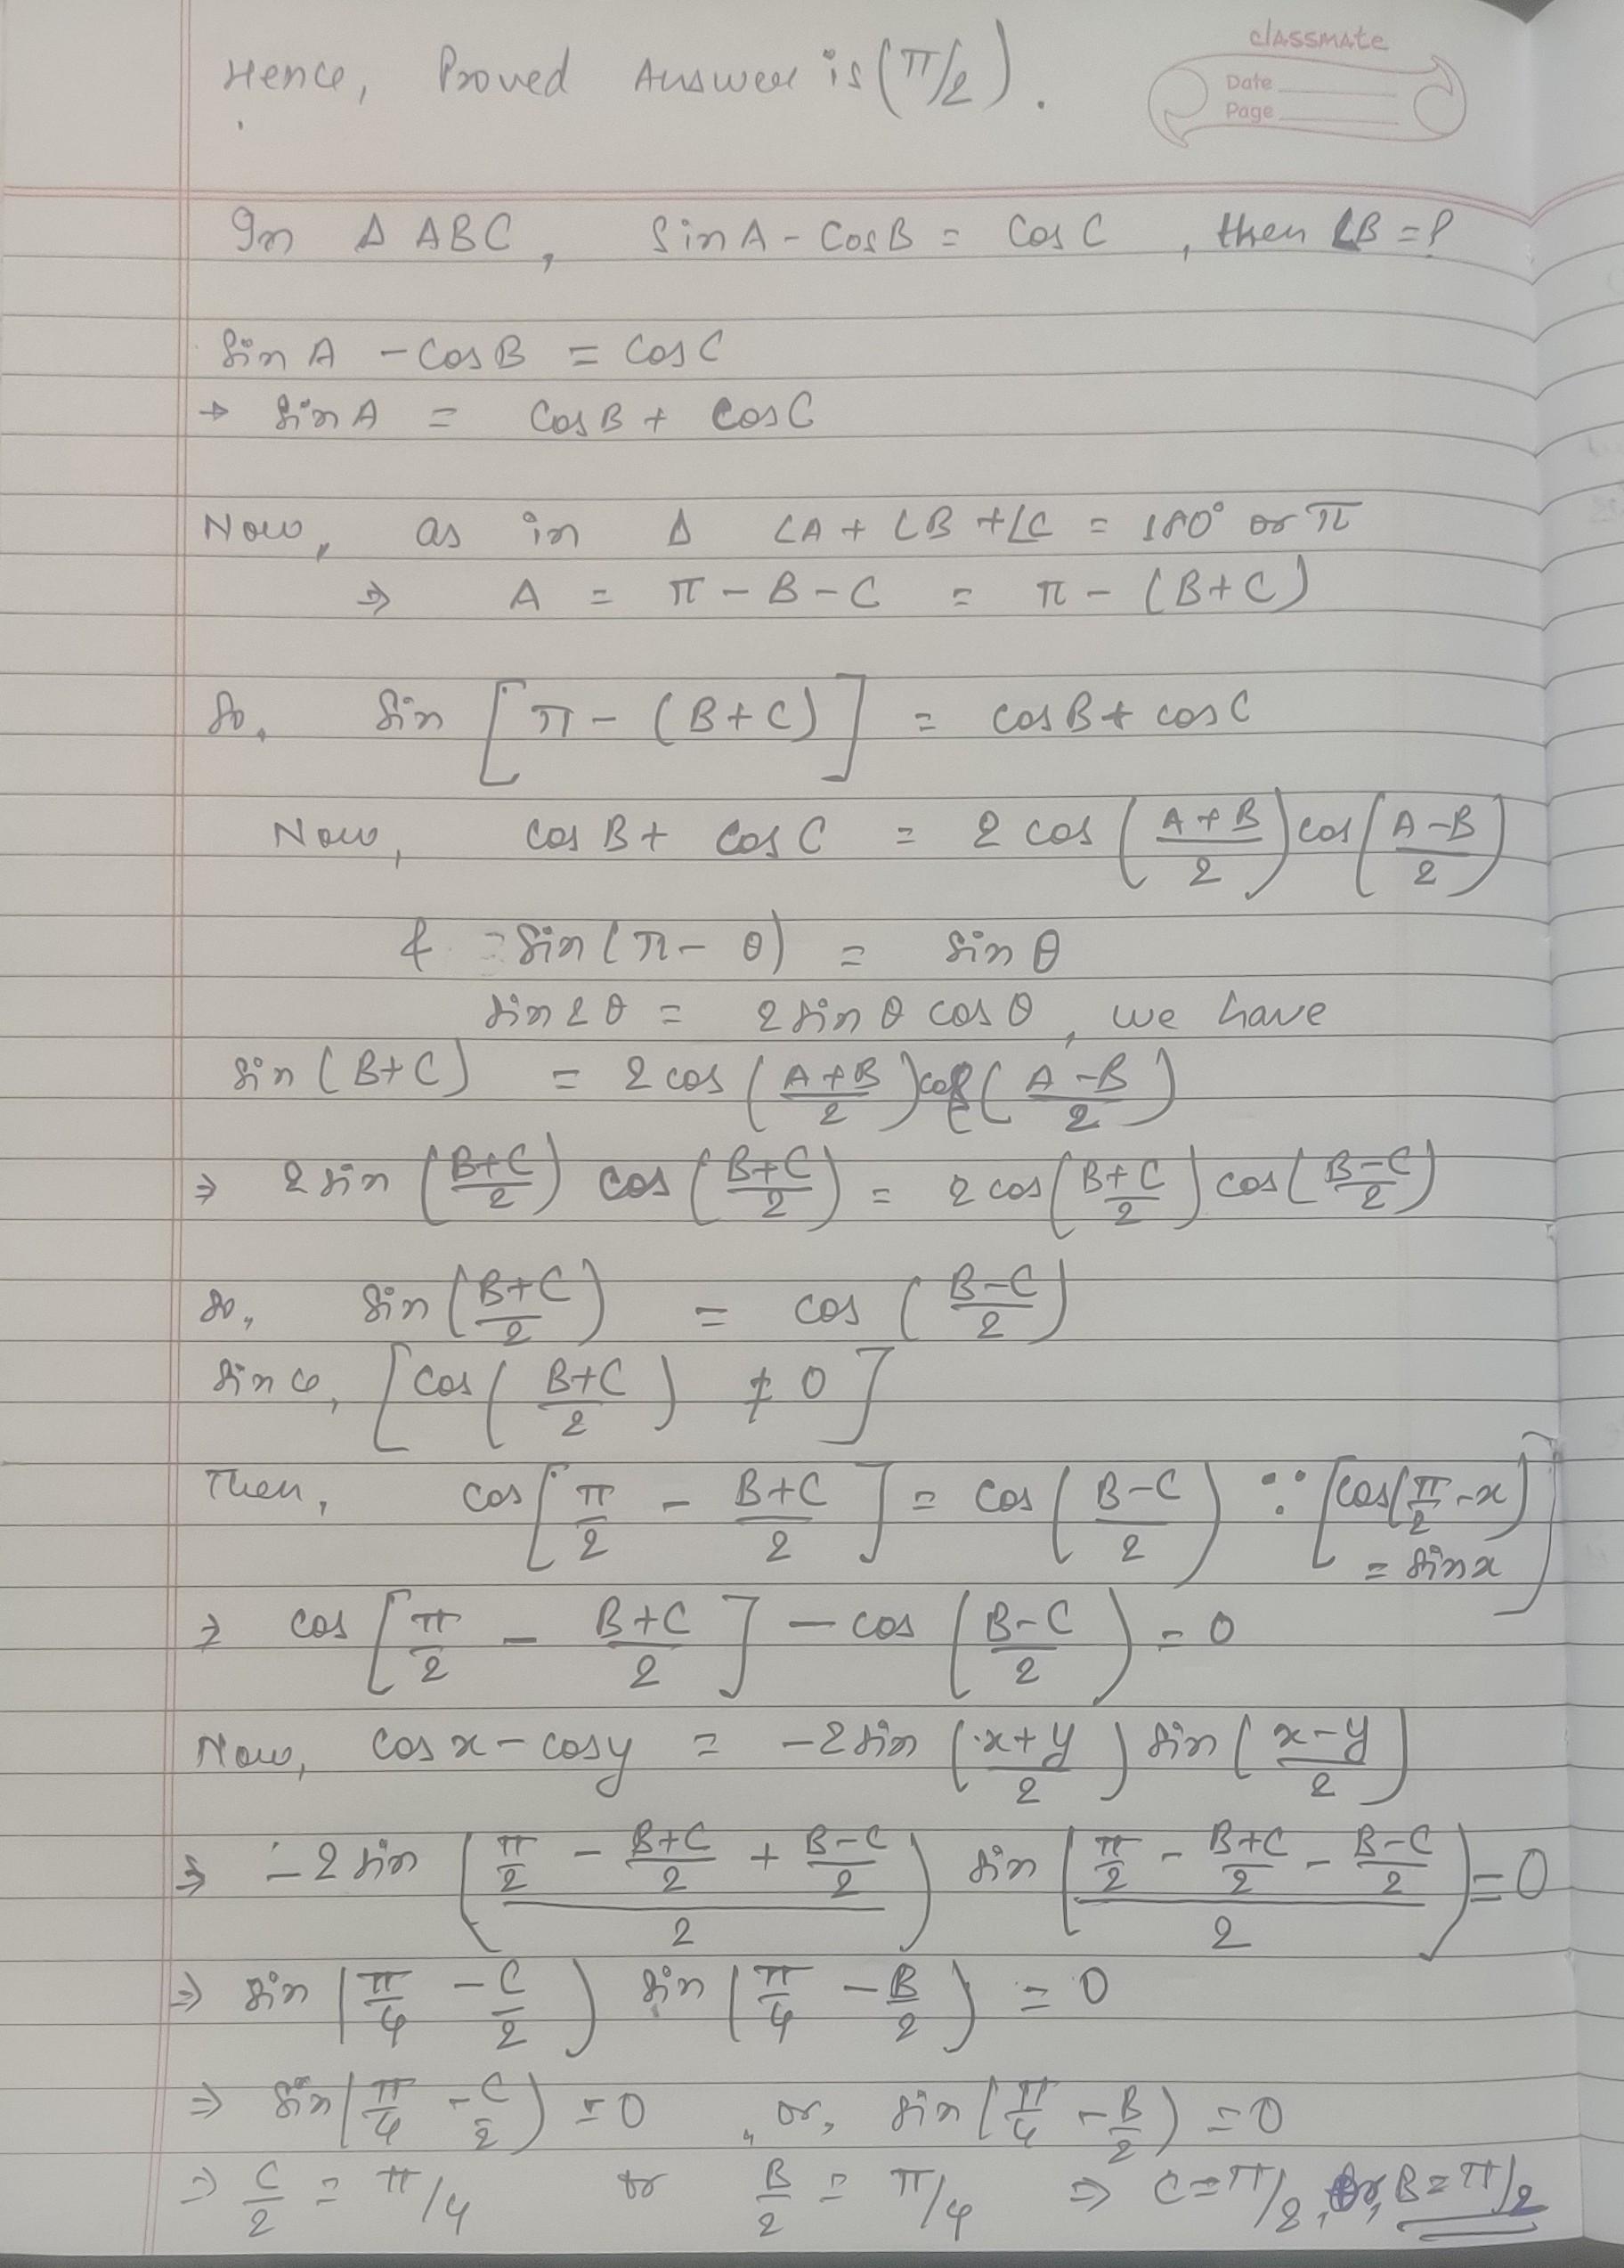 classmate
Date
Page
Hence, Proved Answer is (π/2).
In Δ ABC, Sin A - Cos B = Cos C, then ∠B = ?
Sin A - Cos B = Cos C
→ Sin A = Cos B + Cos C
Now, as in Δ ∠A + ∠B + ∠C = 180° or π
⇒ A = π - B - C = π - (B+C)
So, Sin [π - (B+C)] = cos B + cos C
Now, cos B + cos C = 2 cos ((A+B)/2) cos ((A-B)/2)
& = Sin (π - θ) = Sin θ
Sin 2θ = 2 Sin θ cos θ, we have
Sin (B+C) = 2 cos ((A+B)/2) cos ((A-B)/2)
⇒ 2 Sin ((B+C)/2) cos ((B+C)/2) = 2 cos ((B+C)/2) cos ((B-C)/2)
So, Sin ((B+C)/2) = cos ((B-C)/2)
Since, [cos ((B+C)/2) ≠ 0]
Then, cos [π/2 - (B+C)/2] = cos ((B-C)/2) ∵ [cos(π/2 - x) = Sin x]
⇒ cos [π/2 - (B+C)/2] - cos ((B-C)/2) = 0
Now, cos x - cos y = -2 Sin ((x+y)/2) Sin ((x-y)/2)
⇒ -2 Sin ((π/2 - (B+C)/2 + (B-C)/2)/2) Sin ((π/2 - (B+C)/2 - (B-C)/2)/2) = 0
⇒ Sin (π/4 - C/2) Sin (π/4 - B/2) = 0
⇒ Sin (π/4 - C/2) = 0, or, Sin (π/4 - B/2) = 0
⇒ C/2 = π/4 or B/2 = π/4 ⇒ C = π/2, or, B = π/2